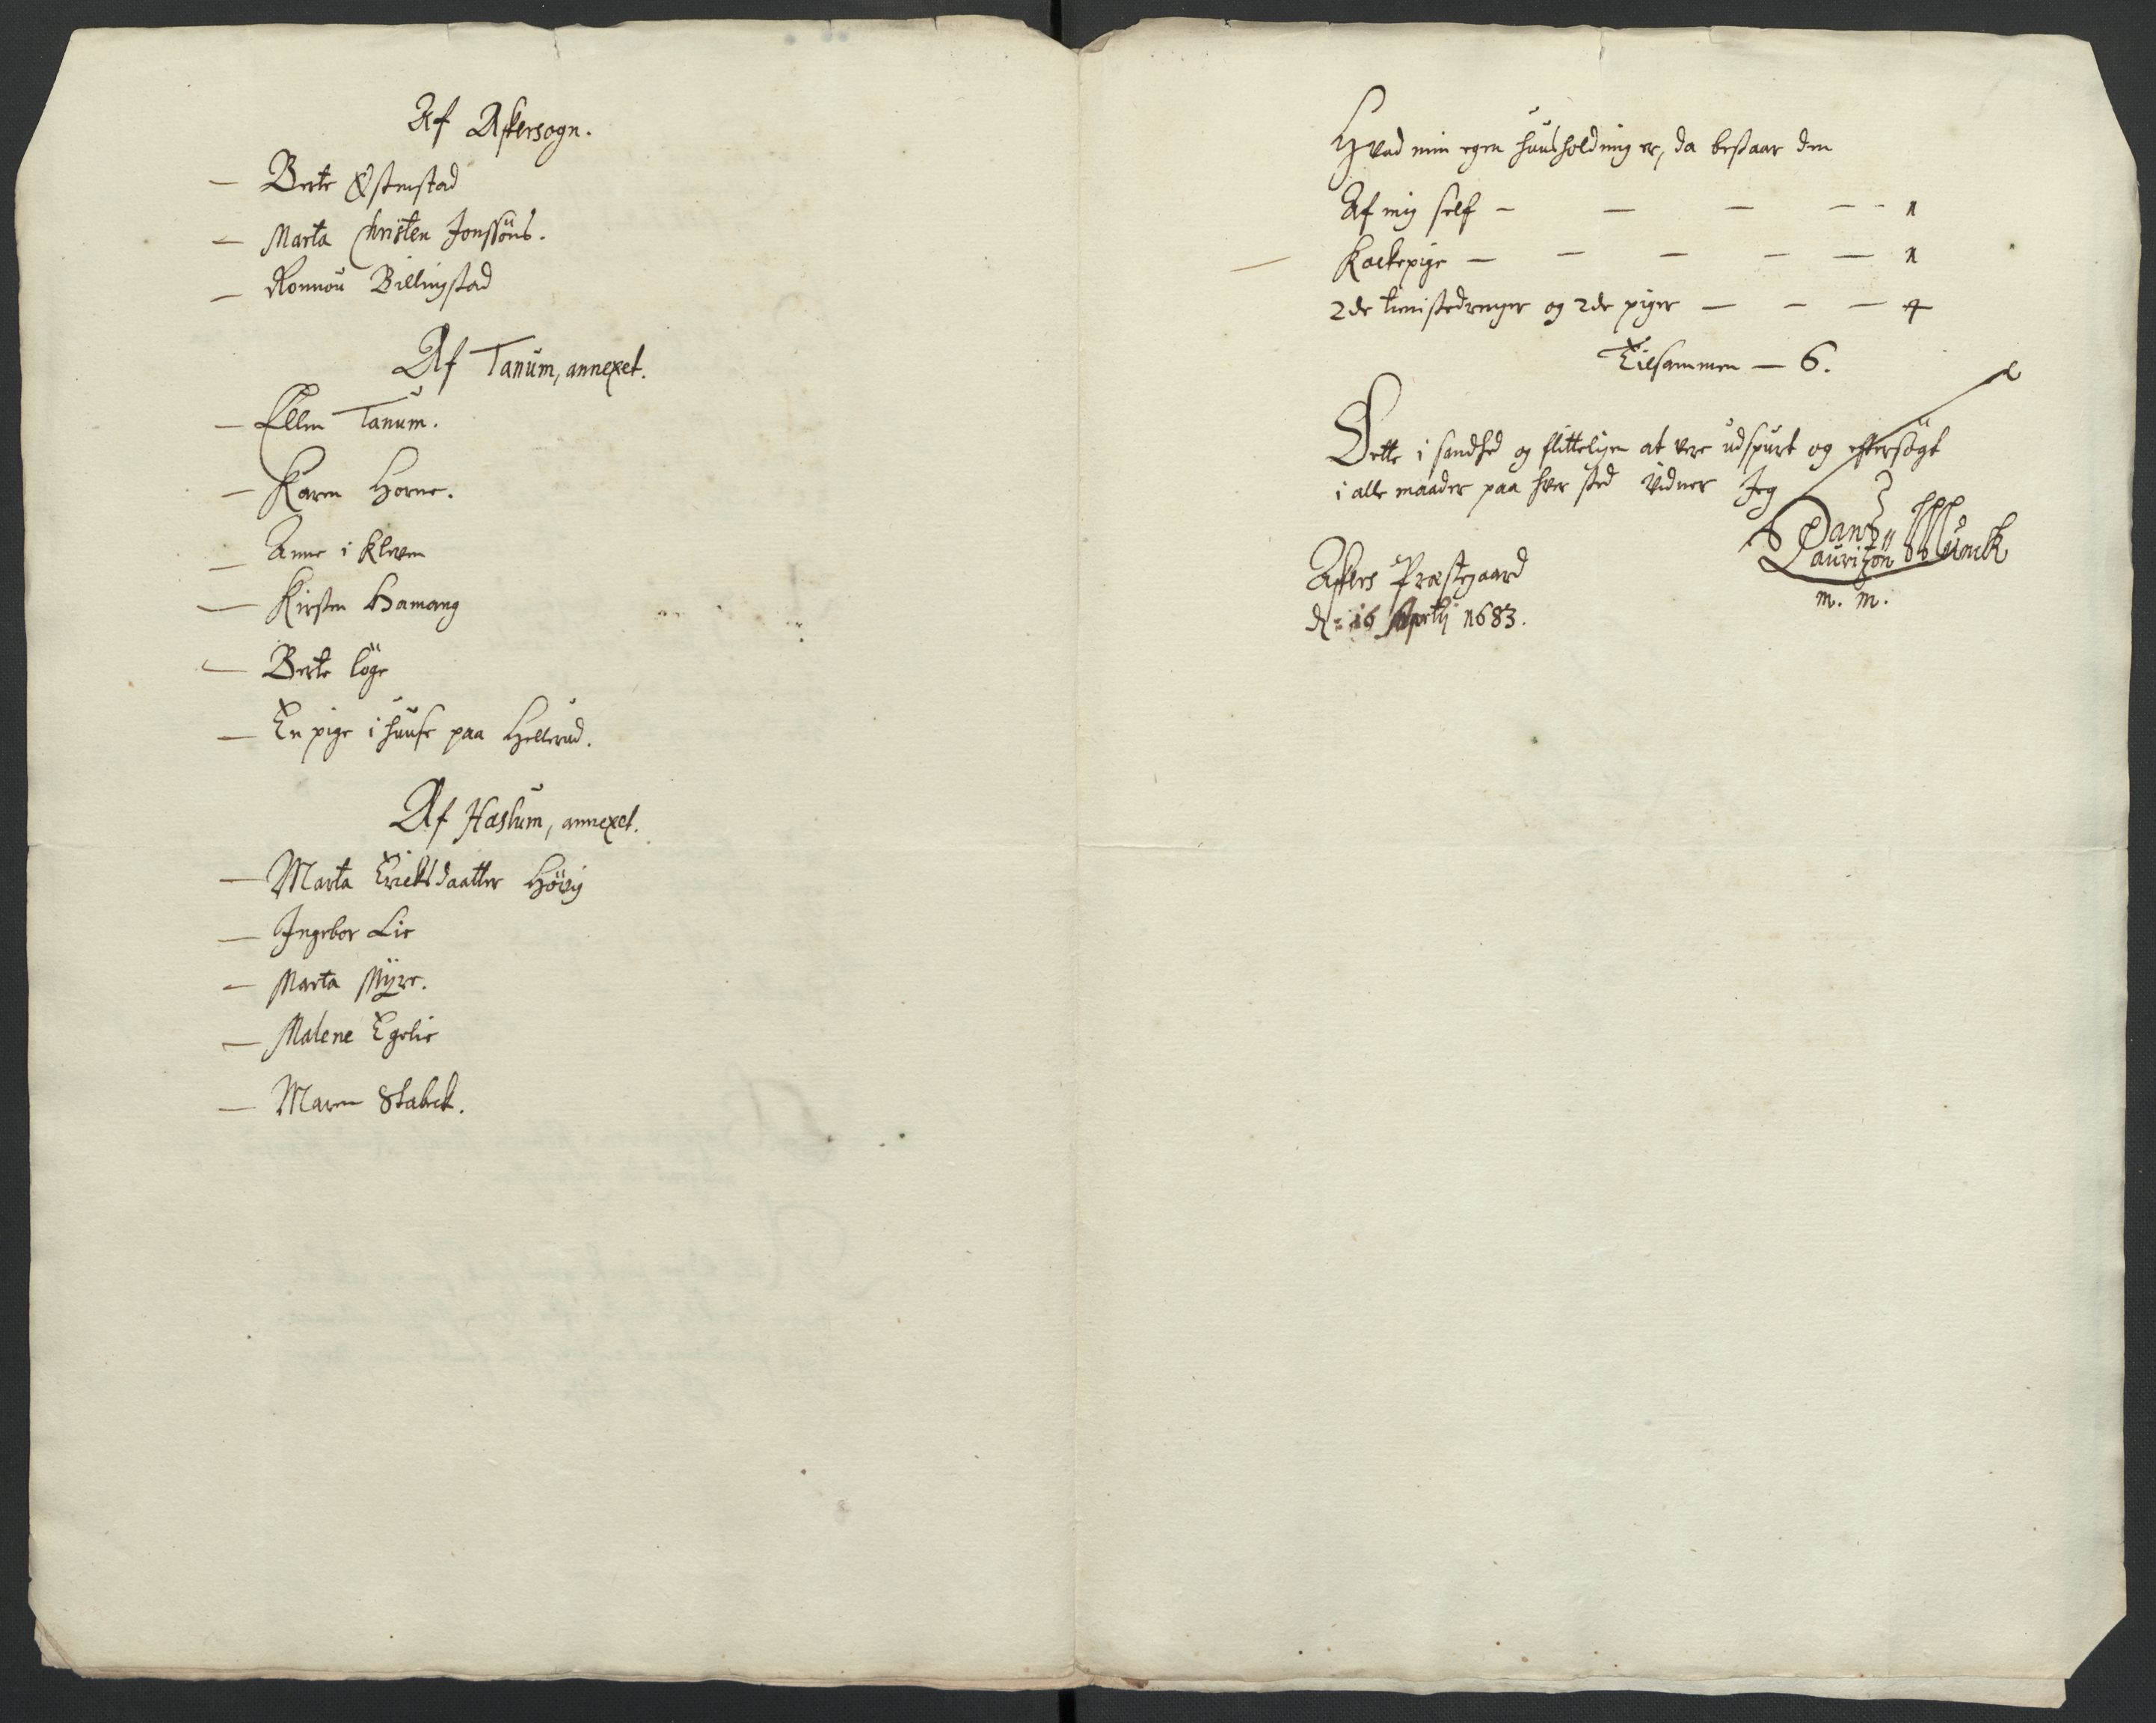 Af Askersogn.
— Berte Østenstad
— Marta Christen Jonssöns.
— Ronnou Billingstad
Af Tanum, annexet.
— Ellen Tanum.
— Karen Horne.
— Anne i Kleven
— Kirsten Hamang
— Berte löge
— En pige i huuse paa Hellerud.
Af Haslum, annexet.
— Marta Ericksdaatter Hövig
— Ingebor Lie
— Marta Myre.
— Malene Egelie
— Maren Stabek.
Hvad min egen huusholdning er, da bestaar den
Af mig self — — — — 1
— Kockepige — — — — — 1
2de tienistedrenger og 2de piger — — — 4
Tilsammen — 6.
Dette i sandhed og flitteligen at vere udspurt og eftersögt
i alle maader paa hver sted vidner Jeg
Lauritzön Munck
m. m.
Askers Præstegaard
d: 16 Aprilij 1683.